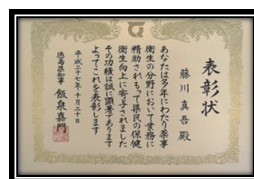 表彰状
藤川 真吾 殿
あなたは多年にわたり薬事
衛生の分野において業務に
精励されもって県民の保健
衛生向上に寄与されました
その功績は誠に顕著であります
よってこれを表彰します
平成二十七年十月二十日
徳島県知事 飯泉嘉門